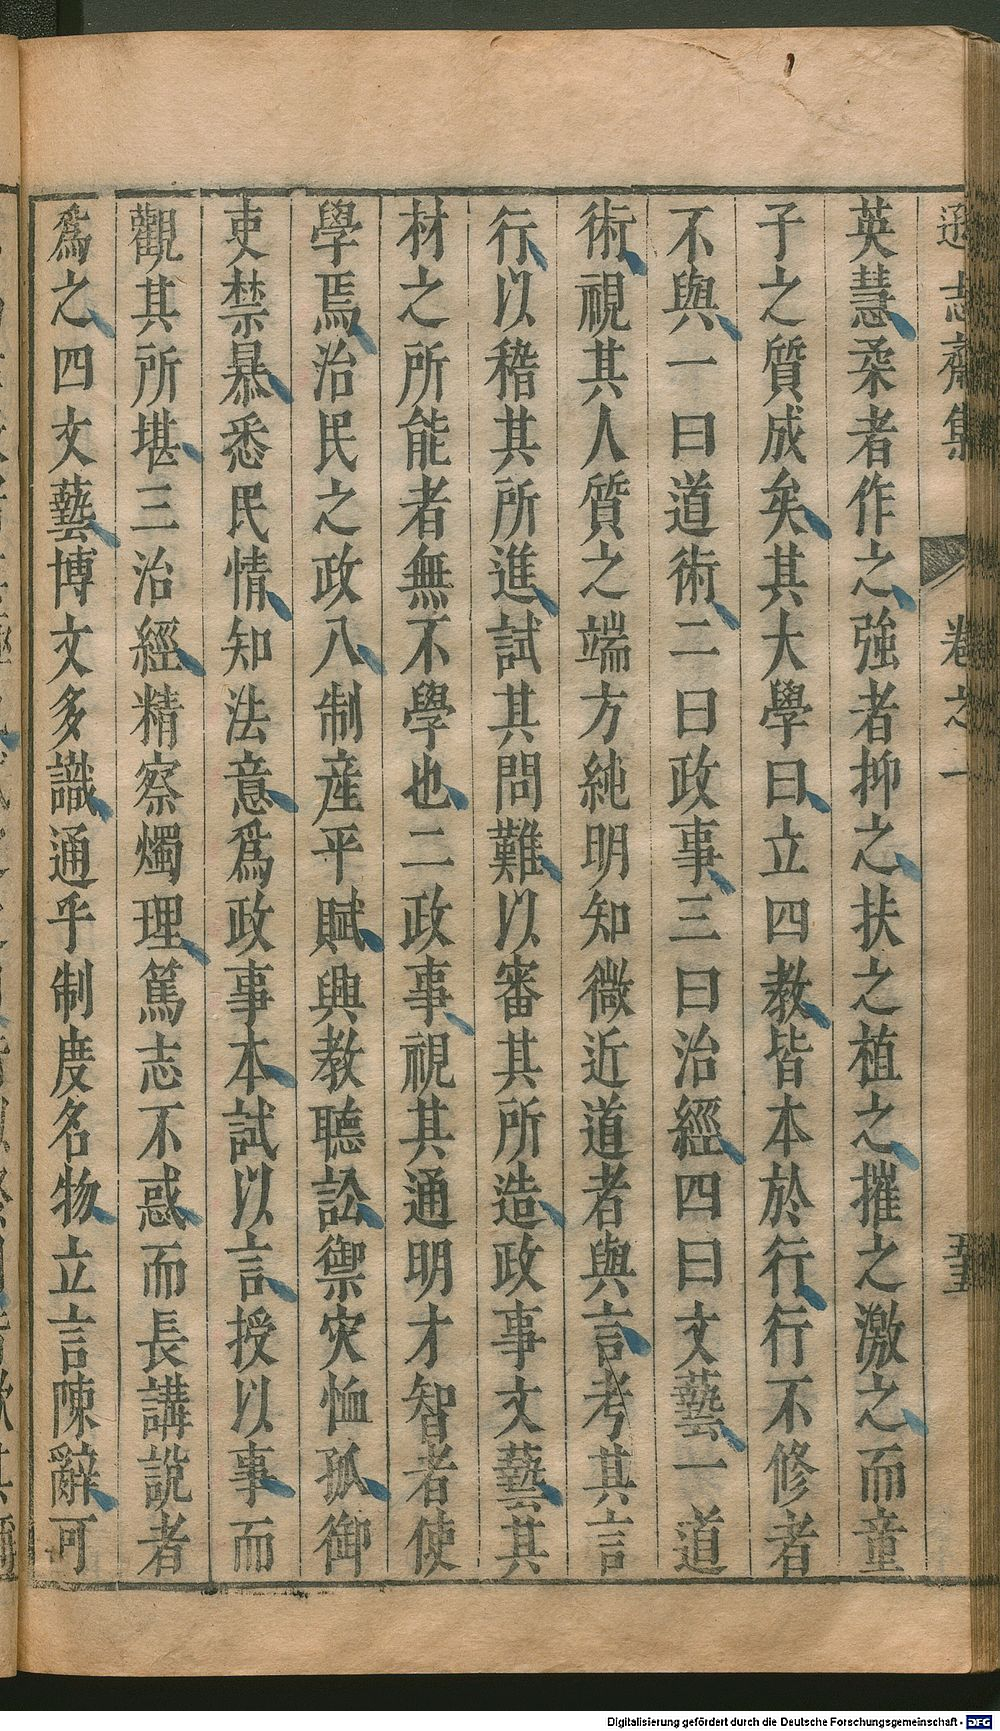 遜志齋集 卷之一 五
英慧柔者作之強者抑之扶之植之摧之激之而童
子之質成矣其大學曰立四教皆本於行行不修者
不與一曰道術二曰政事三曰治經四曰文藝一道
術視其人質之端方純明知微近道者與言考其言
行以稽其所進試其問難以審其所造政事文藝其
材之所能者無不學也二政事視其通明才智者使
學焉治民之政八制産平賦興教聽訟禦灾恤孤御
吏禁暴悉民情知法意為政事本試以言授以事而
觀其所堪三治經精察燭理篤志不惑而長講說者
為之四文藝博文多識通乎制度名物立言陳辭可
Digitalisierung gefördert durch die Deutsche Forschungsgemeinschaft - DFG